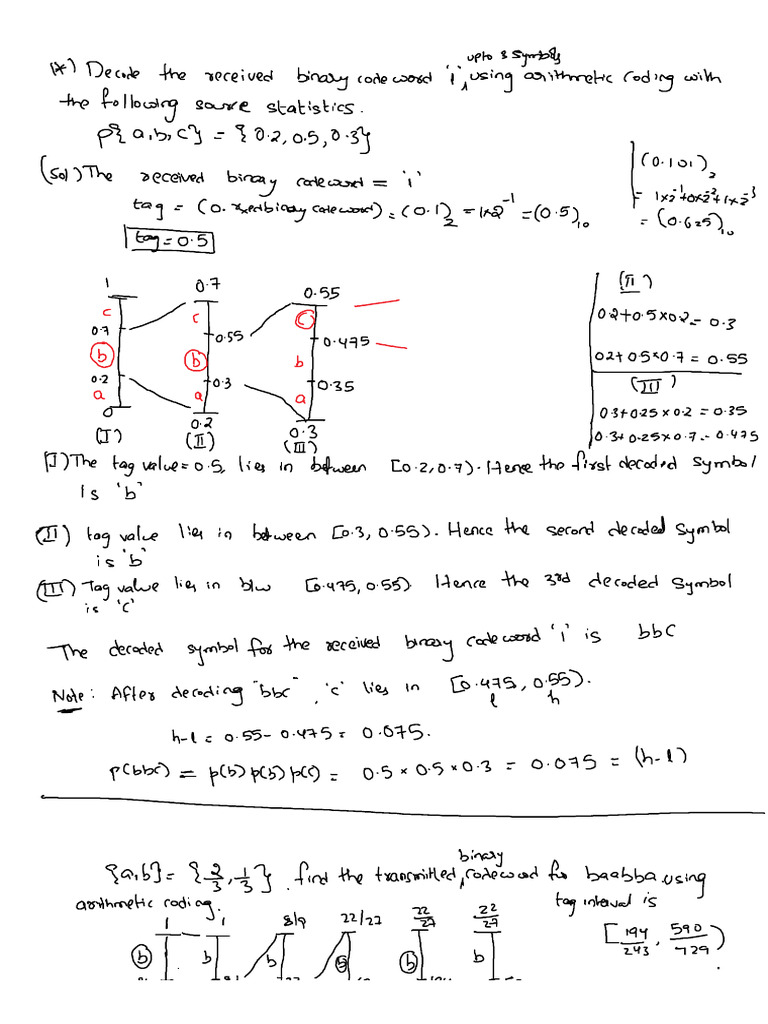 upto 3 symbols
*) Decode the received binary codeword 'i', using arithmetic coding with
the following source statistics.
p{a,b,c} = {0.2, 0.5, 0.3}
(Sol) The received binary codeword = 'i'
tag = (0. rxed binary codeword) = (0.1)₂ = 1×2⁻¹ = (0.5)₁₀
tag = 0.5
(0.101)₂
= 1×2⁻¹+0×2⁻²+1×2⁻³
= (0.625)₁₀
1 0.7 0.55
c c C
0.7 0.55 0.475
b b b
0.2 0.3 0.35
a a a
0 0.2 0.3
(I) (II) (III)
(II)
0.2+0.5×0.2 = 0.3
0.2+0.5×0.7 = 0.55
(III)
0.3+0.25×0.2 = 0.35
0.3+0.25×0.7 = 0.475
(I) The tag value = 0.5, lies in between [0.2, 0.7). Hence the first decoded symbol
is 'b'
(II) tag value lies in between [0.3, 0.55). Hence the second decoded symbol
is 'b'
(III) Tag value lies in b/w [0.475, 0.55). Hence the 3rd decoded symbol
is 'c'
The decoded symbol for the received binary codeword 'i' is bbc
Note: After decoding "bbc", 'c' lies in [0.475, 0.55).
l h
h-l = 0.55 - 0.475 = 0.075.
p(bbc) = p(b) p(b) p(c) = 0.5 × 0.5 × 0.3 = 0.075 = (h-l)
binary
{a,b} = {2/3, 1/3}. find the transmitted, codeword for baabba using
arithmetic coding.
tag interval is
[194/243, 590/729).
1 1 8/9 22/27 22/27 22/27
b b b b b b